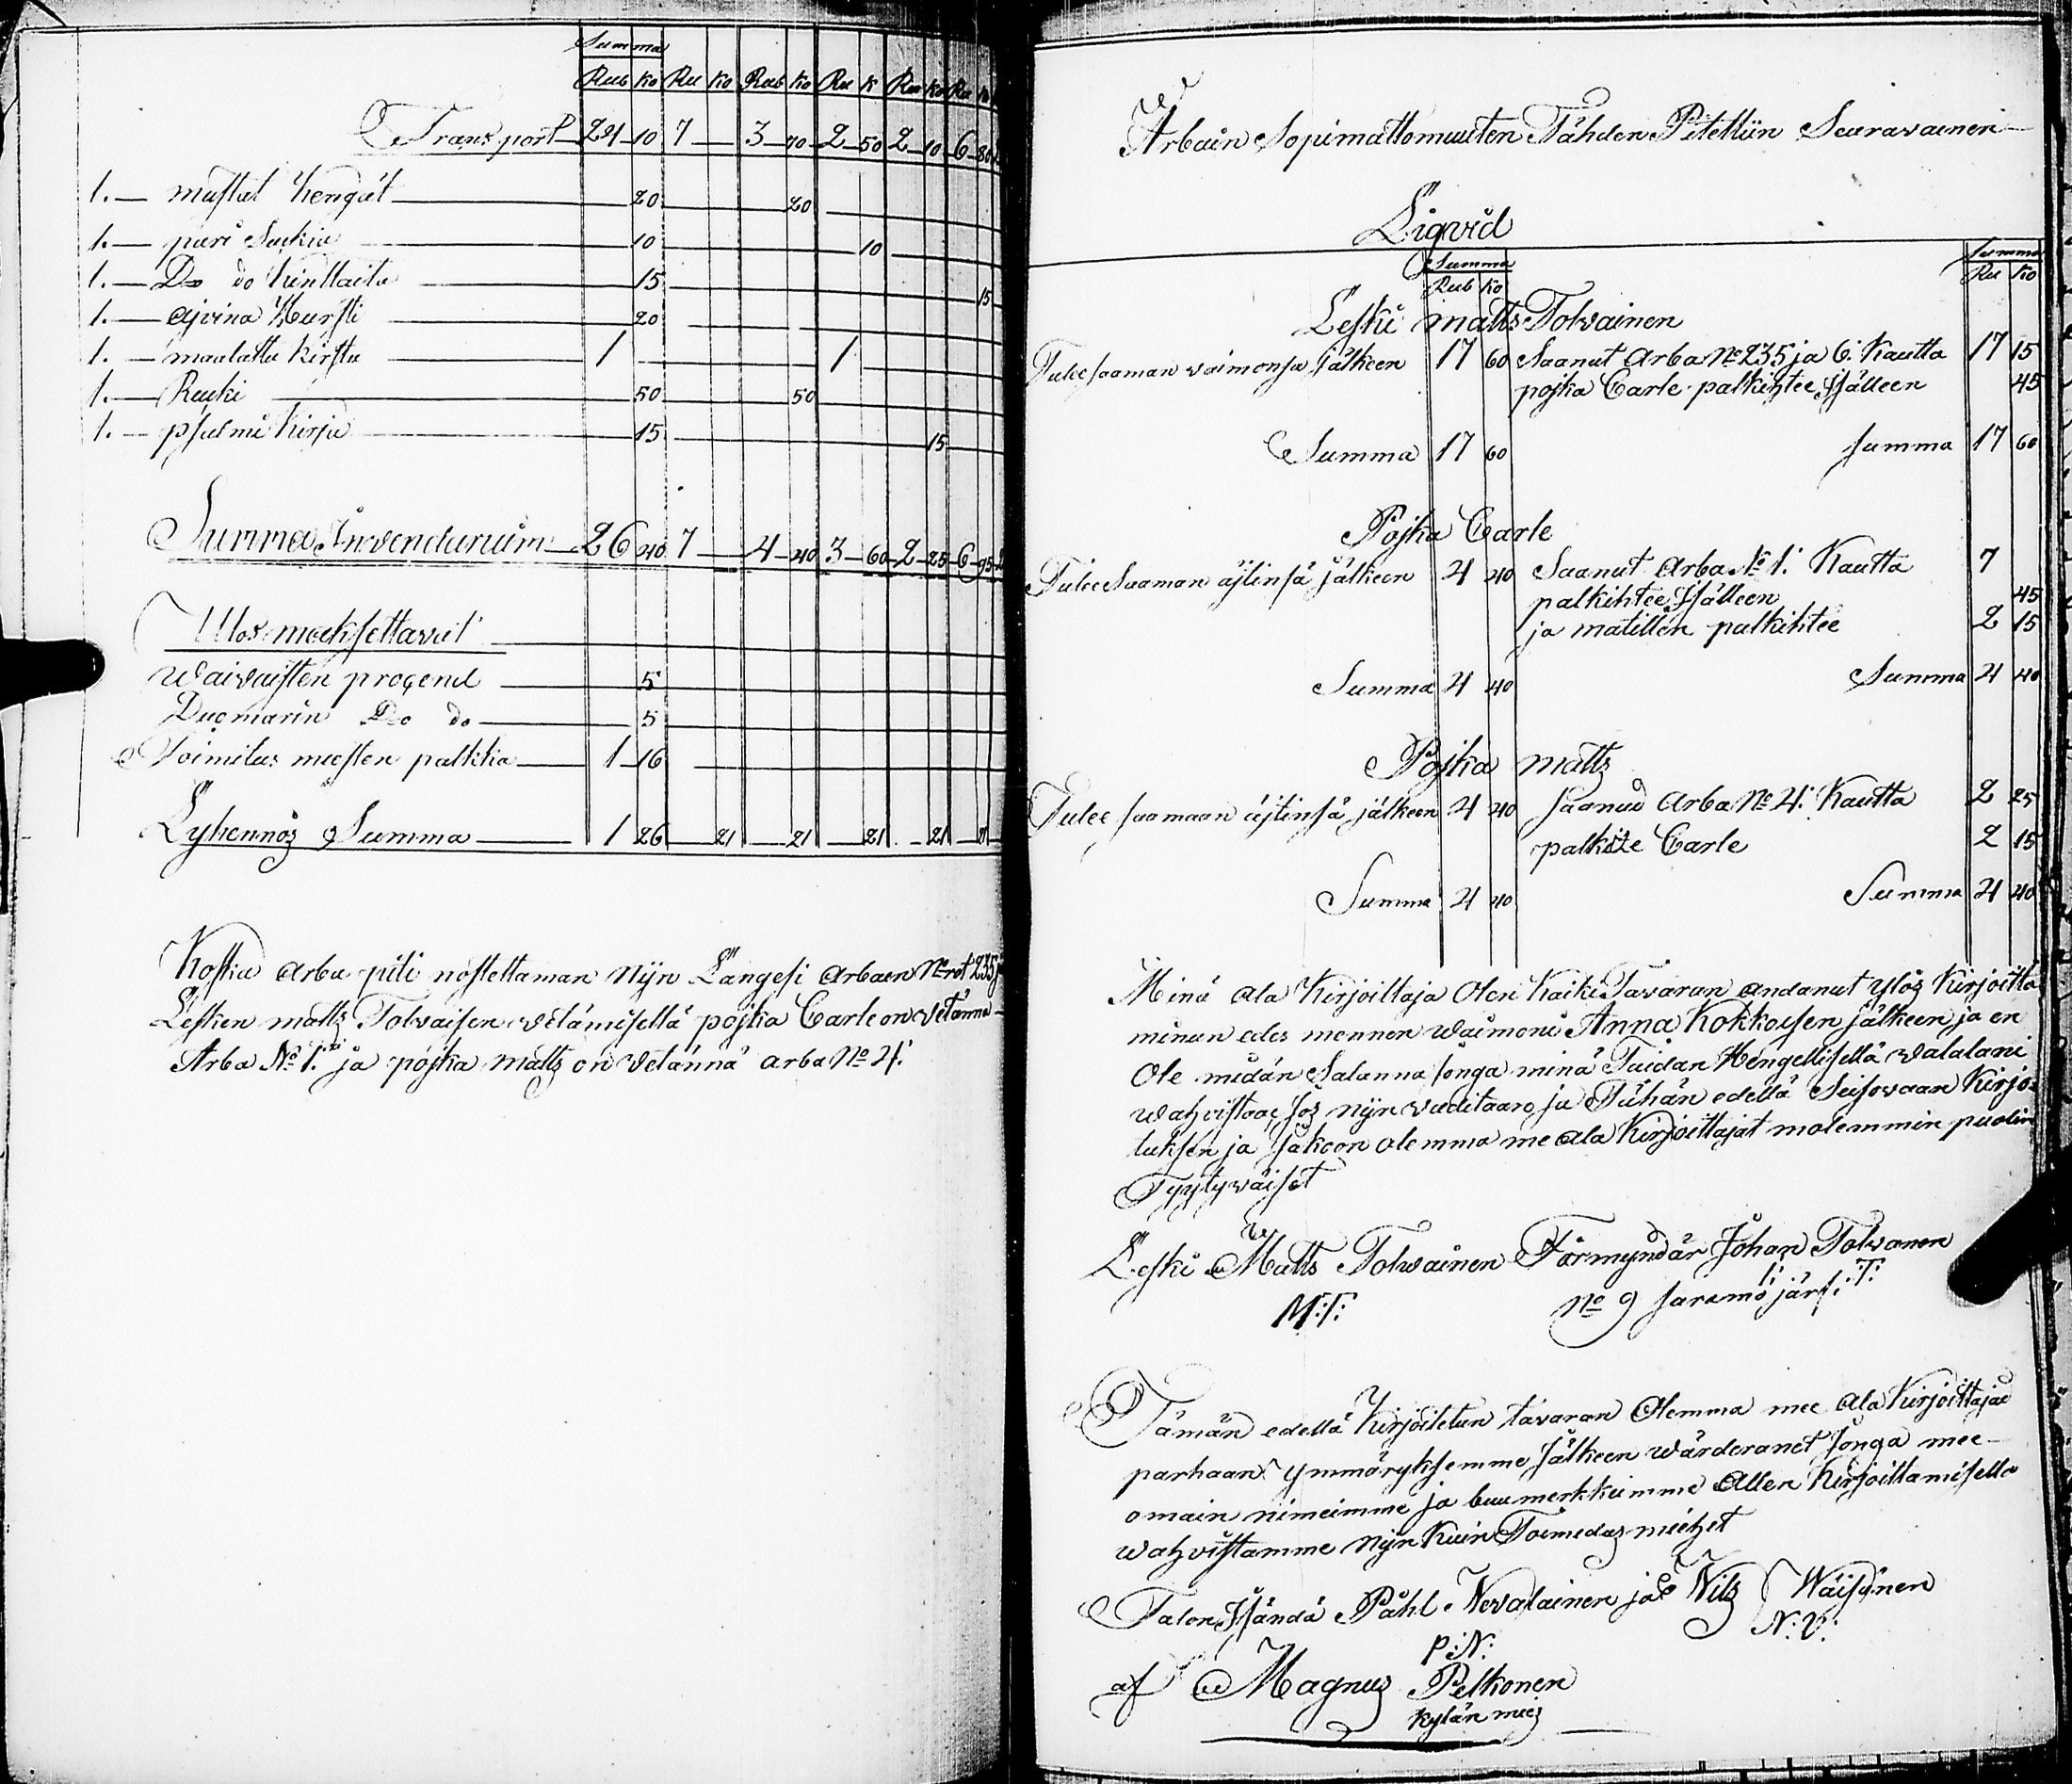 Summa
Rub Ko Ru Ko Rub Ko Ru K Ru Ko Ru
Transport 24 10 7 — 3 70 2 50 2 10 6 80
1. — mustat Kengät 20 20
1. — pari Suckia 10 10
1. — Do do Kinttaita 15 15
1. — ajvina Hursti 20
1. — maalattu Kirstu 1 1
1. — Rucki 50 50
1. — psalmi Kirja 15 15
Summa Inventarium 26 40 7 — 4 40 3 60 2 25 6 95
Ulos maksettavat
Waivaisten procend 5
Duomarin Do do 5
Toimitus miesten palkka 1 16
Lyhennös Summa 1 26 21 21 21 21 21
Koska arba piti nostettaman Nijn Langesi arbaen Nrot 235 j
Lesken matts Tolvaisen vetämisellä pojka Carle on vetännä
Arba No 1. ja pojka matts on vetännä arba No 4.
Arbain Sopimattomuuten Tähden Pitettiin Seuravainen
Liqvid
Summa Summa
Rub Ko Ru Ko
Leski matts Tolvainen
Tulee saaman vaimonsa jälkeen 17 60 Saanut arba No 235 ja 6. Kautta 17 15
pojka Carle palkihtee Isälleen 45
Summa 17 60 summa 17 60
Pojka Carle
Tulee Saaman äjtinsä jälkeen 4 40 Saanut Arba No 1. Kautta 7
palkihtee Isälleen 45
ja matillen palkihtee 2 15
Summa 4 40 Summa 4 40
Pojka matts
Tulee saamaan äjtinsä jälkeen 4 40 saanud Arba No 4. Kautta 2 25
palkite Carle 2 15
Summa 4 40 Summa 4 40
Minä ala Kirjoittaja Olen Kaiki Tavaran andanut ylös Kirjoitta
minun edes mennen waimoni Anna Kokkoisen jälkeen ja en
Ole midän Salanna jonga minä Taidan Hengellisellä walalani
wahvistaa, Jos nijn vaditaan, ja Tähän edellä Seisovaan Kirjo
tuksen ja Jakoon olemma me ala Kirjoittajat molemmin puolin
Tyytyväiset
Leski Matts Tolvainen Förmyndär Johan Tolvanen
M:T: I: T:
No 9 Saramo järf:
Tämän edellä Kirjoitetun tavaran Olemma mee ala Kirjoittajad
parhaan ymmäryksemme Jälkeen wärderanet Jonga mee
omain nimeimme ja buumerkkiimme Allen Kirjoittamisella
wahvistamme Nijn Kuin Toimedas miehet
Talon Isändä Påhl Nevalainen ja Nils Wäisänen
P:N: N:V:
af Magnus Pelkonen
Kylän mies